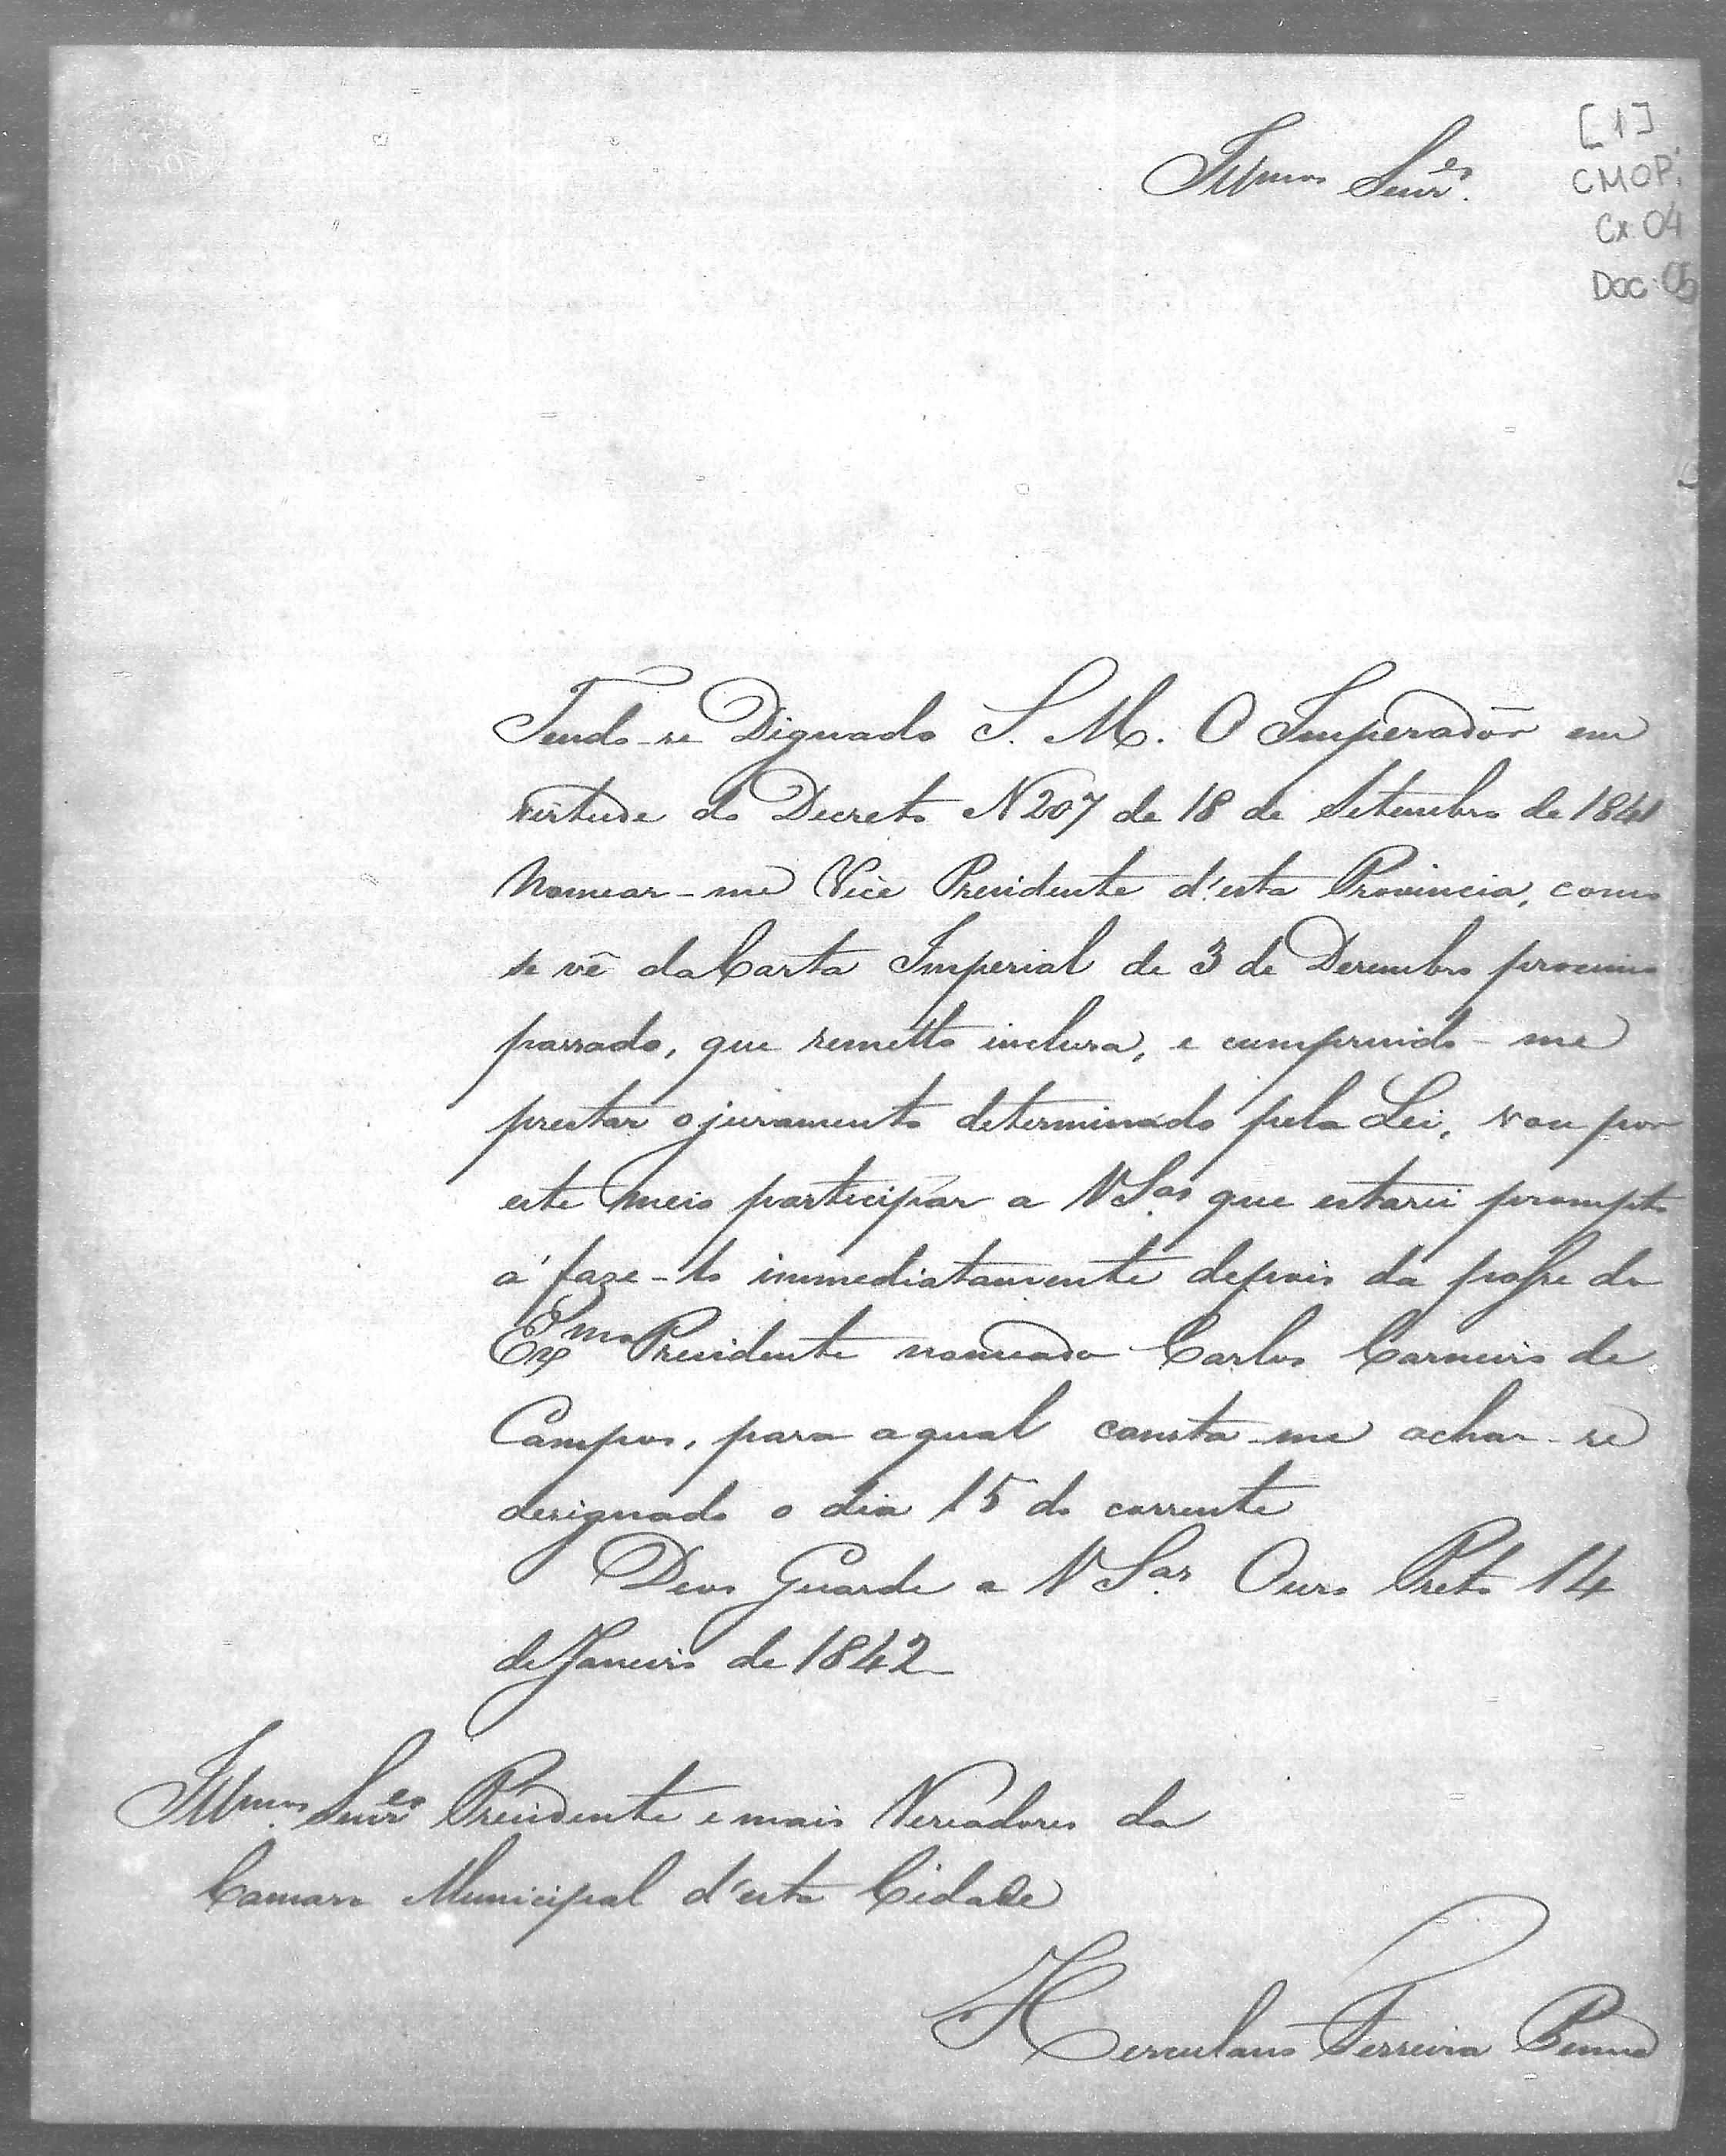 Illmos Senres.
[1]
CMOP.
Cx 04
Doc. 05
Tendo-se Dignado S. M. O Imperador em
virtude do Decreto N 207 de 18 de Setembro de 1841
Nomear-me Vice Presidente d'esta Provincia, como
se vê da Carta Imperial de 3 de Dezembro proximo
passado, que remetto inclusa, e cumprindo-me
prestar o juramento determinado pela Lei, vou por
este meio participar a V Sas que estarei prompto
a faze-lo immediatamente depois da posse do
Exmo Presidente nomeado Carlos Carneiro de
Campos, para a qual consta-me achar-se
designado o dia 15 do corrente
Deos Guarde a V Sas Ouro Preto 14
de Janeiro de 1842
Illmos. Senres Presidente e mais Vereadores da
Camara Municipal d'esta Cidade
Herculano Ferreira Penna